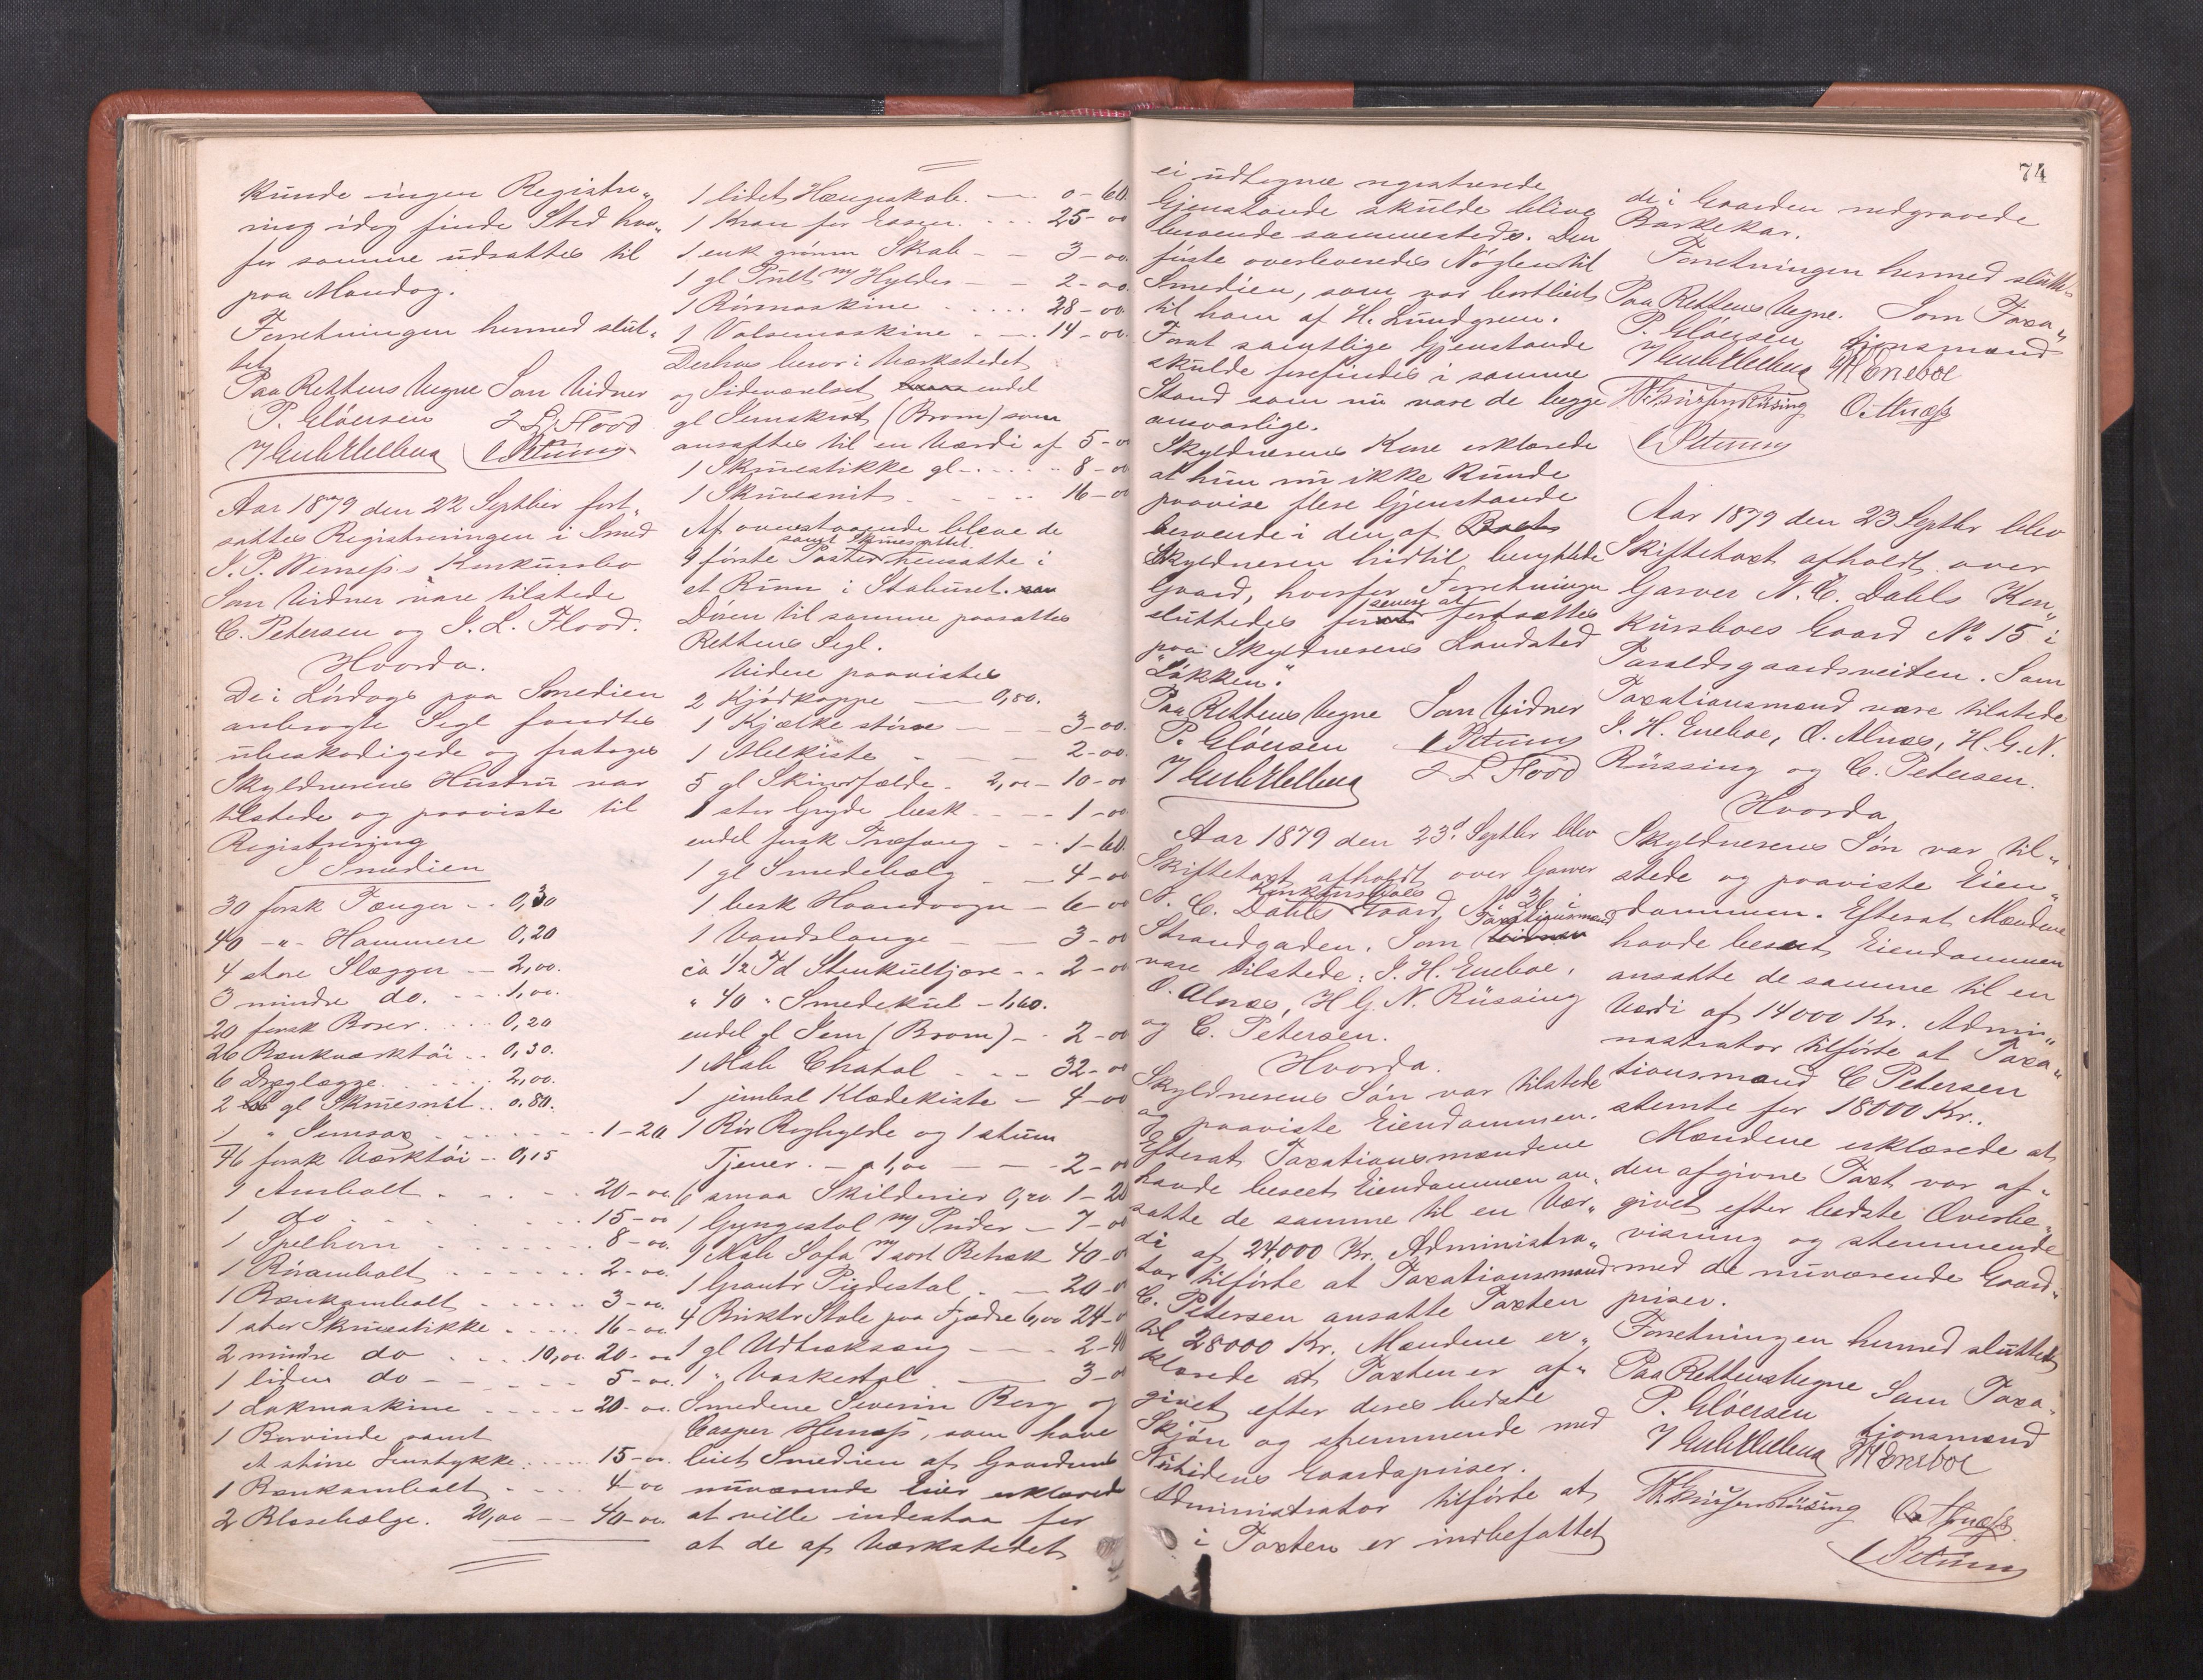 kunde ingen Registre„
ring idag finde Sted hvor„
for samme udsattes til
paa Mandag.
Forretningen hermed slut„
tet
Paa Rettens Vegne Som Vidner
P. Gløersen J L Flood
C Petersen
Aar 1879 den 22 Septber fort„
sattes Registreringen i Smed
J. P. Werness Konkursbo
Som Vidner vare tilstede
C. Petersen og J. L. Flood.
Hvorda.
De i Lørdags paa Smedien
anbragte Segl fandtes
ubeskadigede og fratoges
Skyldnerens Hustru var
tilstede og paaviste til
Registrering
I Smedien
30 forsk Tænger - . 0,30
40 -"- Hammere 0,20
4 store Slægger -- 2,00.
3 mindre do. - - . 1,00.
20 forsk Borer. . . . 0,20
26 Bænkværktøi . . 0,30.
6 Dræglægge . . . . 2,00.
2 gl Skruesnit . . 0.80.
1 " Jernsag . . . . . 1-20
46 forsk Værktøi - . 0,15
1 Ambolt . . . . 20-00
1 do . . . . 15-00
1 Spelhorn . . . . 8-00.
1 Rørambolt . . . . 2-00.
1 Bænkambolt . . . . 3-00.
1 stor Skruestikke . . . . 16-00
2 mindre do . . . 10,00. 20-00
1 liden do - - - - 5-00.
1 Lokmaskine - - - - 20-00
1 Borvinde samt
et større Jernstykke. . . . 15-00.
1 Bænkambolt - . . . 4-00
2 Blæsebælge. 20,00 -- 40-00.
1 lidet Hængeskab. — 0-60.
1 Kran for Essen. . . . 25-00
1 enk grønm Skab - - 3-00.
1 gl Pult m/ Hylder - - 2-00.
1 Børemaskine . . . . 28-00
1 Valsemaskine . - . 14-00.
Derhos beror i Værkstedet
og Sideværelset endel
gl Jernskrot (Brom) som
ansattes til en Værdi af 5-00
1 Skruestikke gl - . . . . 8-00
1 Skruesnit . - - . . 16-00
Af ovenstaaende bleve de
samt Skruesnittet
9 første Poster hensatte i
et Rum i Staburet.
Døren til samme paasattes
Rettens Segl.
Videre paavistes
2 Kjødkoppe — 0,50.
1 Kjælke større - - - 3-00.
1 Melkiste - - - 2-00.
5 gl Skindfælde - 2,00 - 10-00
1 stor Gryde besk - - - - 1-00
endel forsk Træfang - - . 1-60.
1 gl Smedebælg - - 4-00
1 besk Haandvogn - 6-00
1 Vandslange - — 3-00
ca 1/2 Td Stenkultjære - . 2-00
" 40 " Smedekul - 1,60.
endel gl Jern (Brom) - . 2-00
1 Mah Chatol - - - 32-00
1 jernbesl Klædekiste - 4-00
1 Rør Roghylde og 1 stum
Tjener. - a 1,00 - - - 2-00
6 smaa Skilderier 0,20 1-20
1 Gyngestol m/ Puder - 7-00
1 Mah Sofa m/ sort Betræk 40-00
1 Grantr Pigdestal . — 20-00
4 Birktr Stole paa Fjædre 6,00 24-00
1 gl Udtræksseng — 2-40
1 " Vaskestol — 3-00
Smedene Severin Berg og
Casper Hemess, som have
leiet Smedien af Gaardens
nuværende Eier erklærede
at ville indestaa for
at de af Værkstedet
74
ei udtagne registrerede
Gjenstande skulde blive
beroende sammesteds. Den
første overleveredes Nøglen til
Smedien, som var bortliet
til ham af H. Lundgreen.
Forat samtlige Gjenstande
skulde forefindes i samme
Stand som nu vare de begge
ansvarlige.
Skyldnerens Kone erklærede
at hun nu ikke kunde
paavise flere Gjenstande
beroende i den af Boets
Skyldneren hidtil benyttede
Gaard, hvorfor Forretningen
senere at
sluttedes for fortsættes
paa Skyldnerens Landsted
"Løkken".
Paa Rettens Vegne Som Vidner
P. Gløersen C Petersen
J L Flood
Aar 1879 den 23d Septbr blev
Skiftetaxt afholdt over Garver
Konkursboes
N. C. Dahls Gaard, No 36 i
Taxtationsmænd
Strandgaden. Som Vidner
vare tilstede: J. H. Eneboe,
O. Alnæs, H. G. N. Rüssing
og C. Petersen.
Hvorda.
Skyldnerens Søn var tilstede
og paaviste Eiendommen.
Efterat Taxationsmændene
havde beseet Eiendommen an„
satte de samme til en Vær„
di af 24,000 Kr. Administra„
tor tilførte at Taxationsmand
C. Petersen ansatte Taxten
til 28000 Kr. Mændene er„
klærede at Taxten er af„
givet efter deres bedste
Skjøn og stemmende med
Nutidens Gaardspriser.
Administrator tilførte at
i Taxten er indbefattet
de i Gaarden nedgravede
Barkekar.
Forretningen hermed sluttet
Paa Rettens Vegne. Som Taxa„
P. Gløersen tionsmænd
JH Eneboe
O. Alnæss
C Petersen
Aar 1879 den 23 Septbr blev
Skiftetaxt afholdt over
Garver N. C. Dahls Kon„
kursboes Gaard No 15 i
Taraldsgaardsveiten. Som
Taxationsmænd vare tilstede
J. H. Eneboe, O. Alnæs, H. G. N.
Rüssing og C. Petersen.
Hvorda
Skyldnerens Søn var til„
stede og paaviste Eien„
dommen. Efterat Mændene
havde beseet Eiendommen
ansatte de samme til en
Værdi af 14000 Kr. Admini„
nastrator tilførte at Taxa„
tionsmand C Petersen
stemte for 18000 Kr..
Mændene erklærede at
den afgivne Taxt var af„
givet efter bedste Overbe„
visning og stemmende
med de nuværende Gaard„
priser.
Forretningen hermed sluttet
Paa Rettens Vegne Som Taxa„
P. Gløersen tionsmænd
JH Eneboe
O. Alnæss
C Petersen